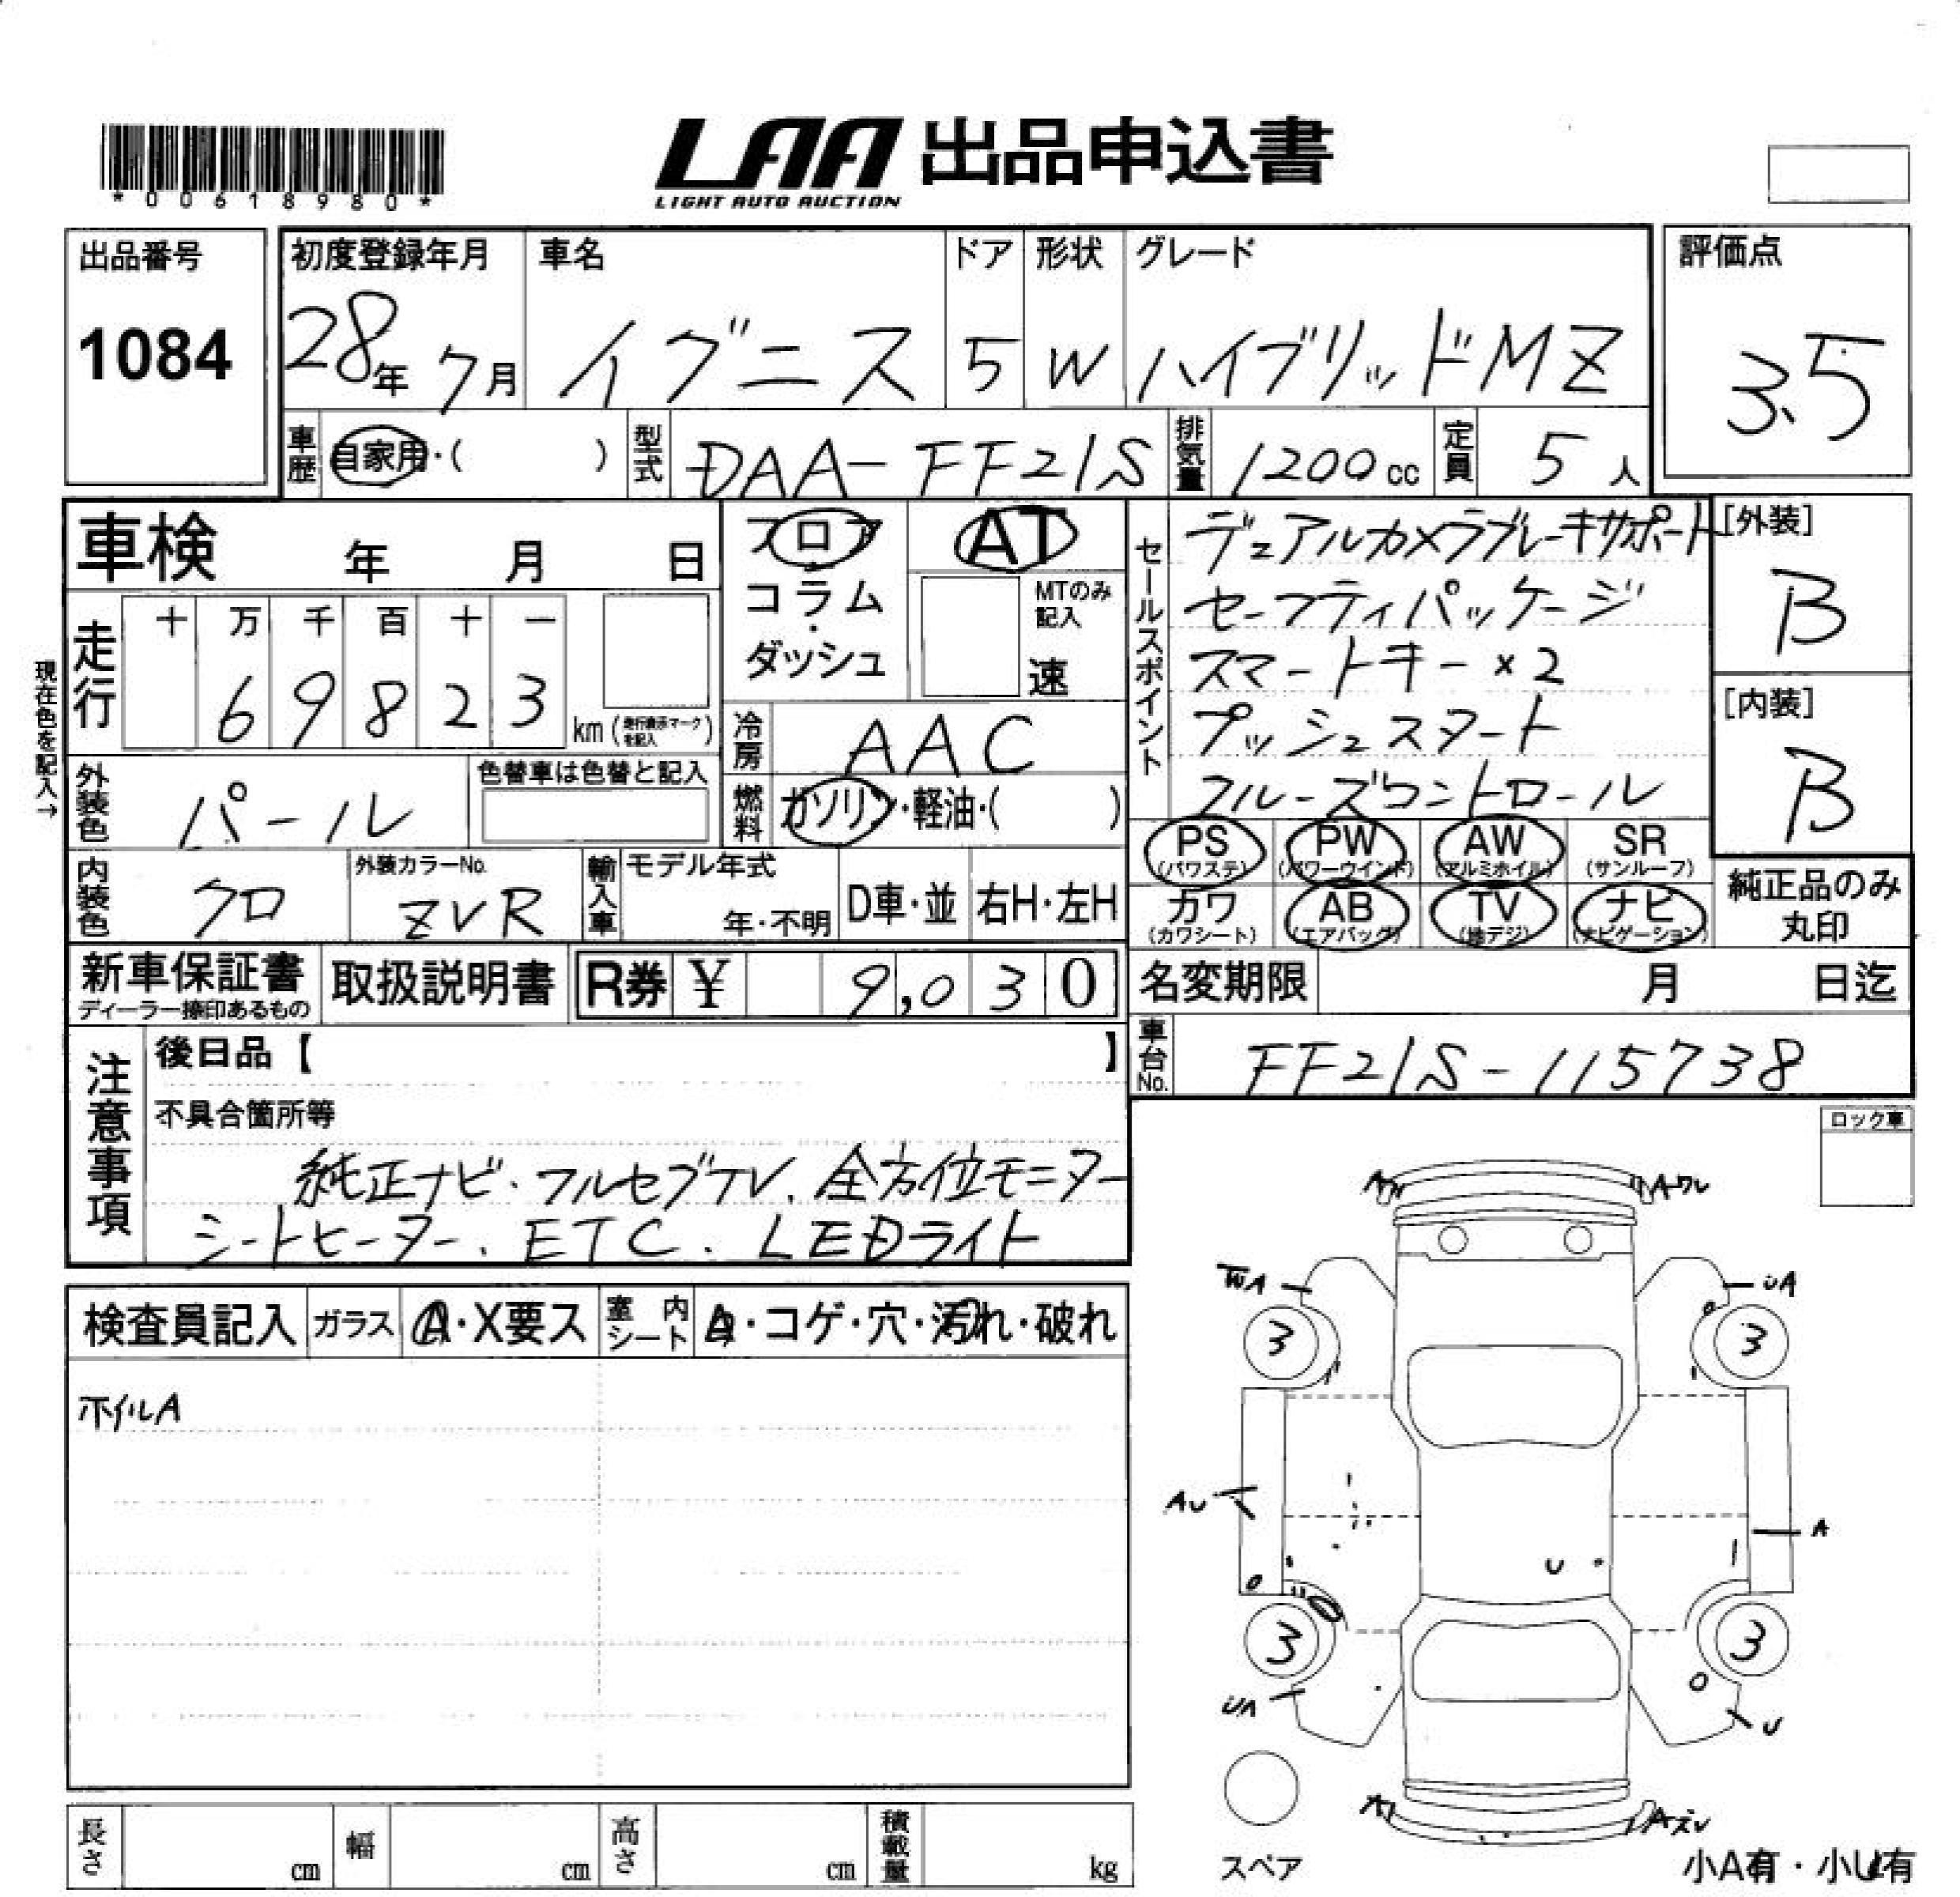 *00618980*
LAA 出品申込書
LIGHT AUTO AUCTION
出品番号
1084
初度登録年月
28年 7月
車名
イグニス
ドア
5
形状
W
グレード
ハイブリッドMZ
評価点
3.5
車歴 自家用・( )
型式 DAA-FF21S
排気量 1200cc
定員 5人
車検 年 月 日
現在色を記入→
走行
十 万 千 百 十 一
6 9 8 2 3
km (走行表示マークを記入)
フロア
コラム
・
ダッシュ
AT
MTのみ
記入
速
冷房 AAC
燃料 ガソリン・軽油・( )
外装色 パール
色替車は色替と記入
内装色 クロ
外装カラーNo.
ZVR
輸入車 モデル年式
年・不明
D車・並
右H・左H
セールスポイント
デュアルカメラブレーキサポート
セーフティパッケージ
スマートキー×2
プッシュスタート
クルーズコントロール
[外装]
B
[内装]
B
PS
(パワステ)
PW
(パワーウインド)
AW
(アルミホイル)
SR
(サンルーフ)
カワ
(カワシート)
AB
(エアバッグ)
TV
(地デジ)
ナビ
(ナビゲーション)
純正品のみ
丸印
新車保証書
ディーラー捺印あるもの
取扱説明書
R券 ¥ 9,030
名変期限 月 日迄
車台No. FF21S-115738
注意事項
後日品【 】
不具合箇所等
純正ナビ・フルセグTV、全方位モニター
シートヒーター、ETC、LEDライト
ロック車
検査員記入
ガラス A・X要ス
室内シート
・コゲ・穴・汚れ・破れ
ホイルA
Aワレ
UA
3
3
AU
A
U
3
3
UA
U
スペア
小A有・小U有
長さ cm
幅 cm
高さ cm
積載量 kg